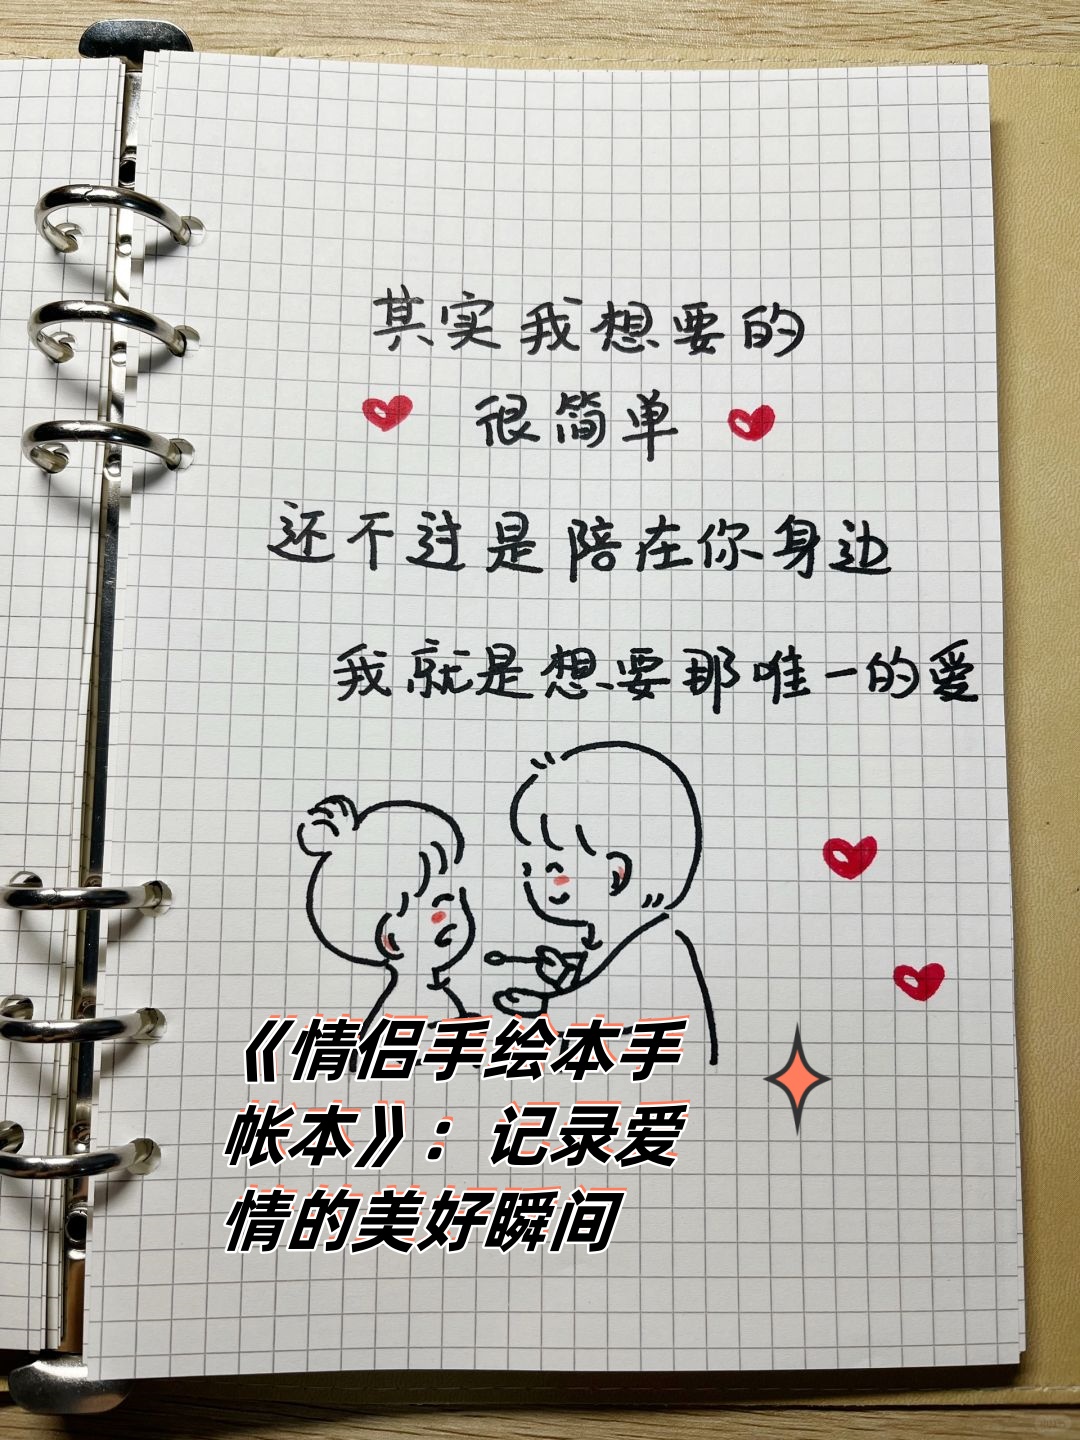 其实我想要的
很简单
还不过是陪在你身边
我就是想要那唯一的爱
《情侣手绘本手
帐本》：记录爱
情的美好瞬间